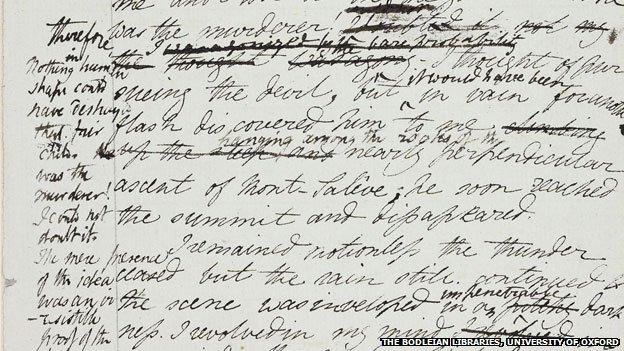 me and
was the murderer! I doubted it not my
I was agonized by the bare probability
the thought I thought of pur
it would have been
sueing the devil, but in vain for another
flash discovered him to me climbing
hanging among the rocks of the
up the steep and nearly perpendicular
ascent of Mont-Salêve; he soon reached
the summit and disappeared.
I remained motionless the thunder
ceased but the rain still continued &
the scene was enveloped in an
impenetrable
dark
ness. I revolved in my mind
therefore
in
Nothing human
shape could
have destroyed
that fair
child. He
was the
murderer!
I could not
doubt it.
The mere presence
of the idea
was an irr
-esistible
proof of the
THE BODLEIAN LIBRARIES, UNIVERSITY OF OXFORD